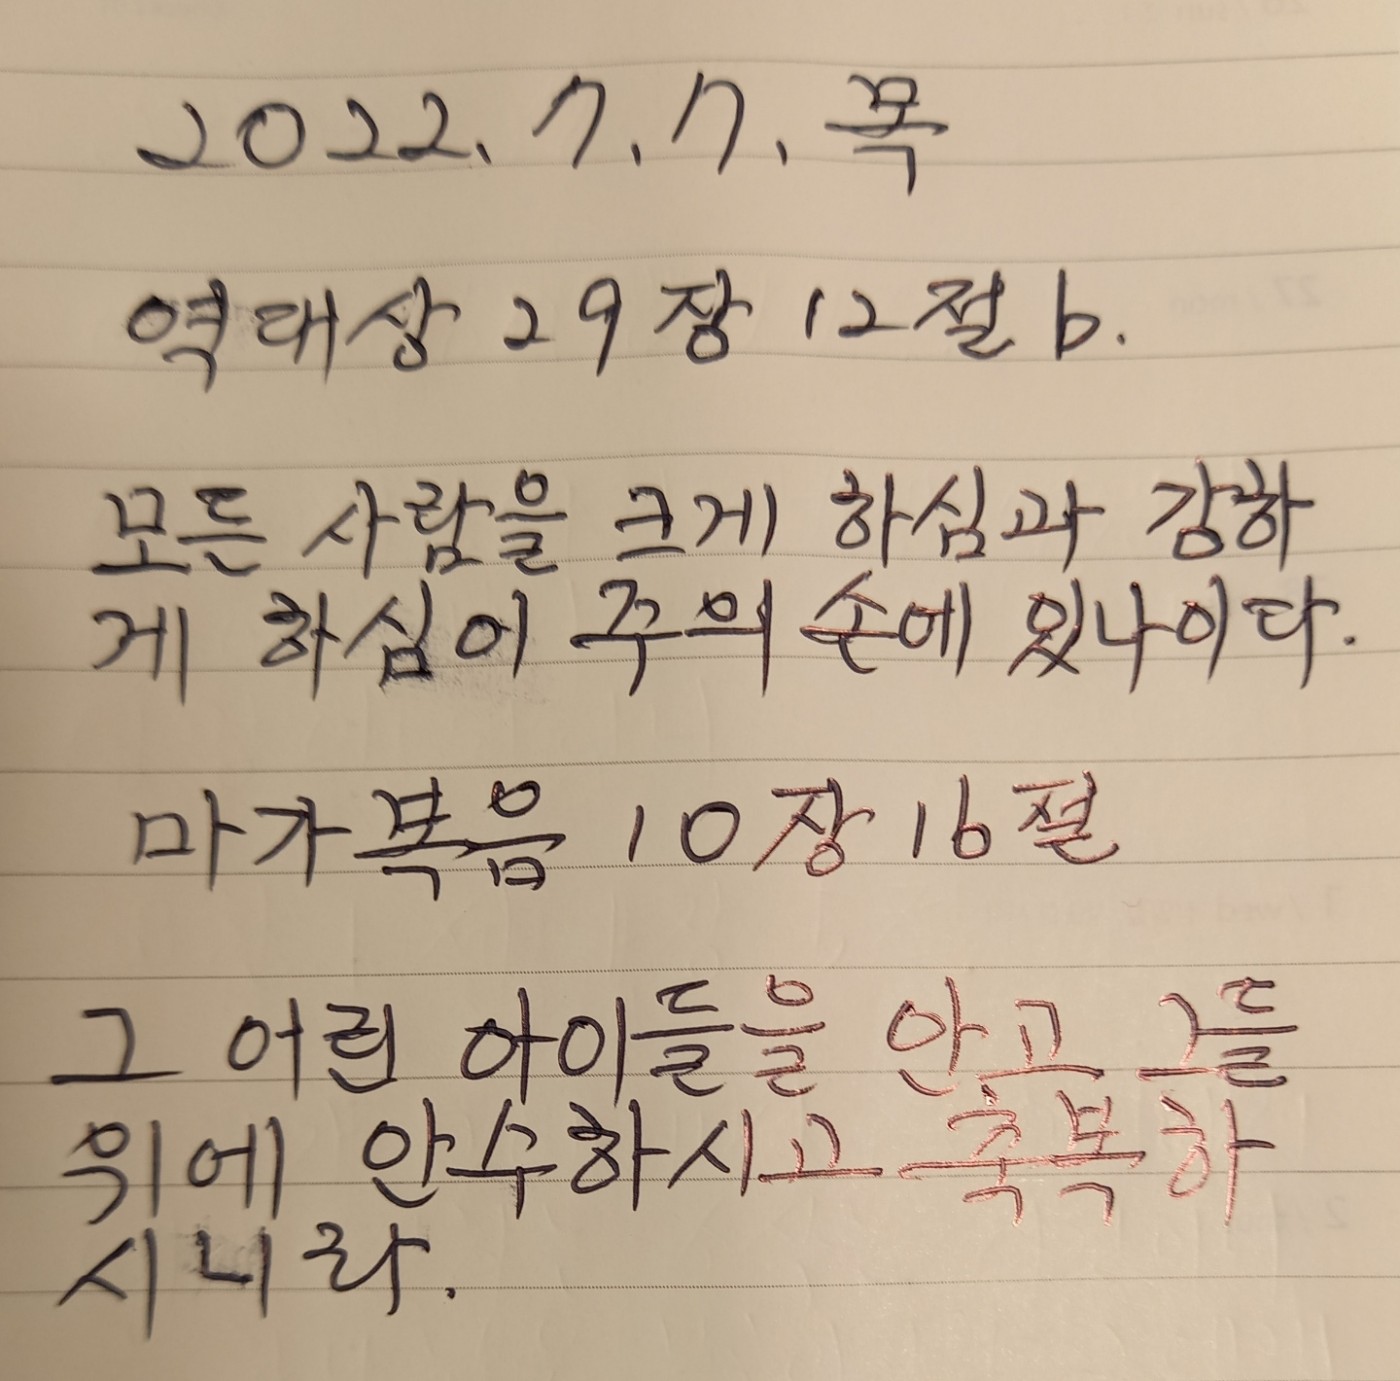 2022. 7. 7. 목
역대상 29장 12절 b.
모든 사람을 크게 하심과 강하
게 하심이 주의 손에 있나이다.
마가복음 10장 16절
그 어린 아이들을 안고 그들
위에 안수하시고 축복하
시니라.